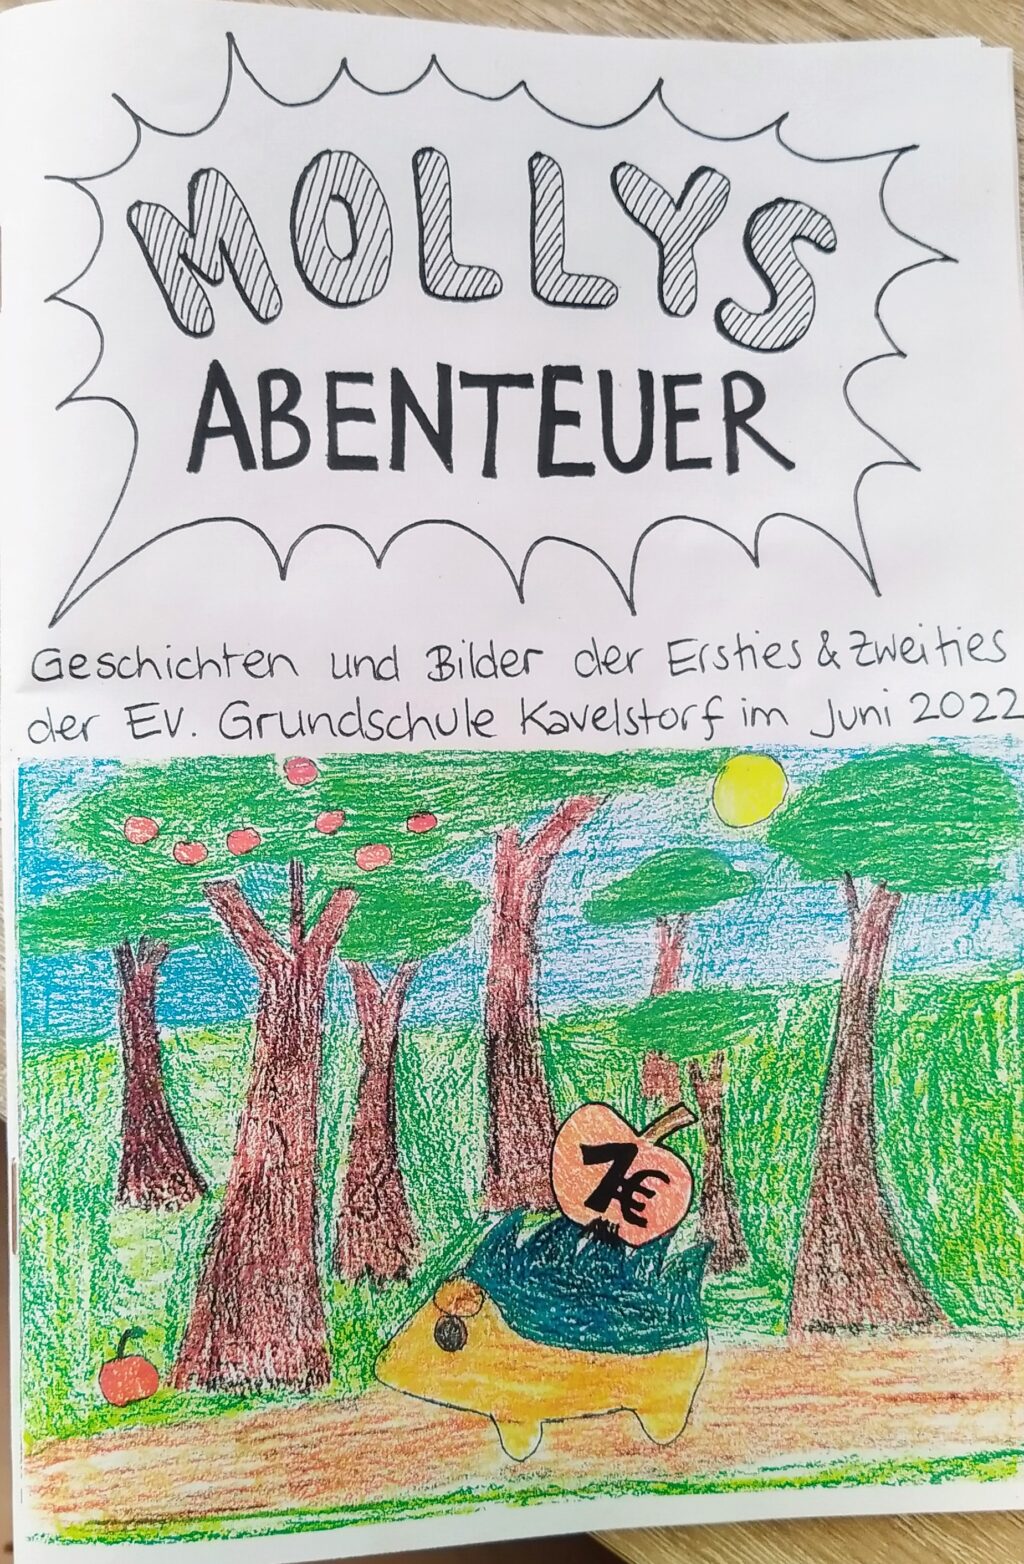 MOLLYS
ABENTEUER
Geschichten und Bilder der Ersties & Zweities
der Ev. Grundschule Kavelstorf im Juni 2022
7€